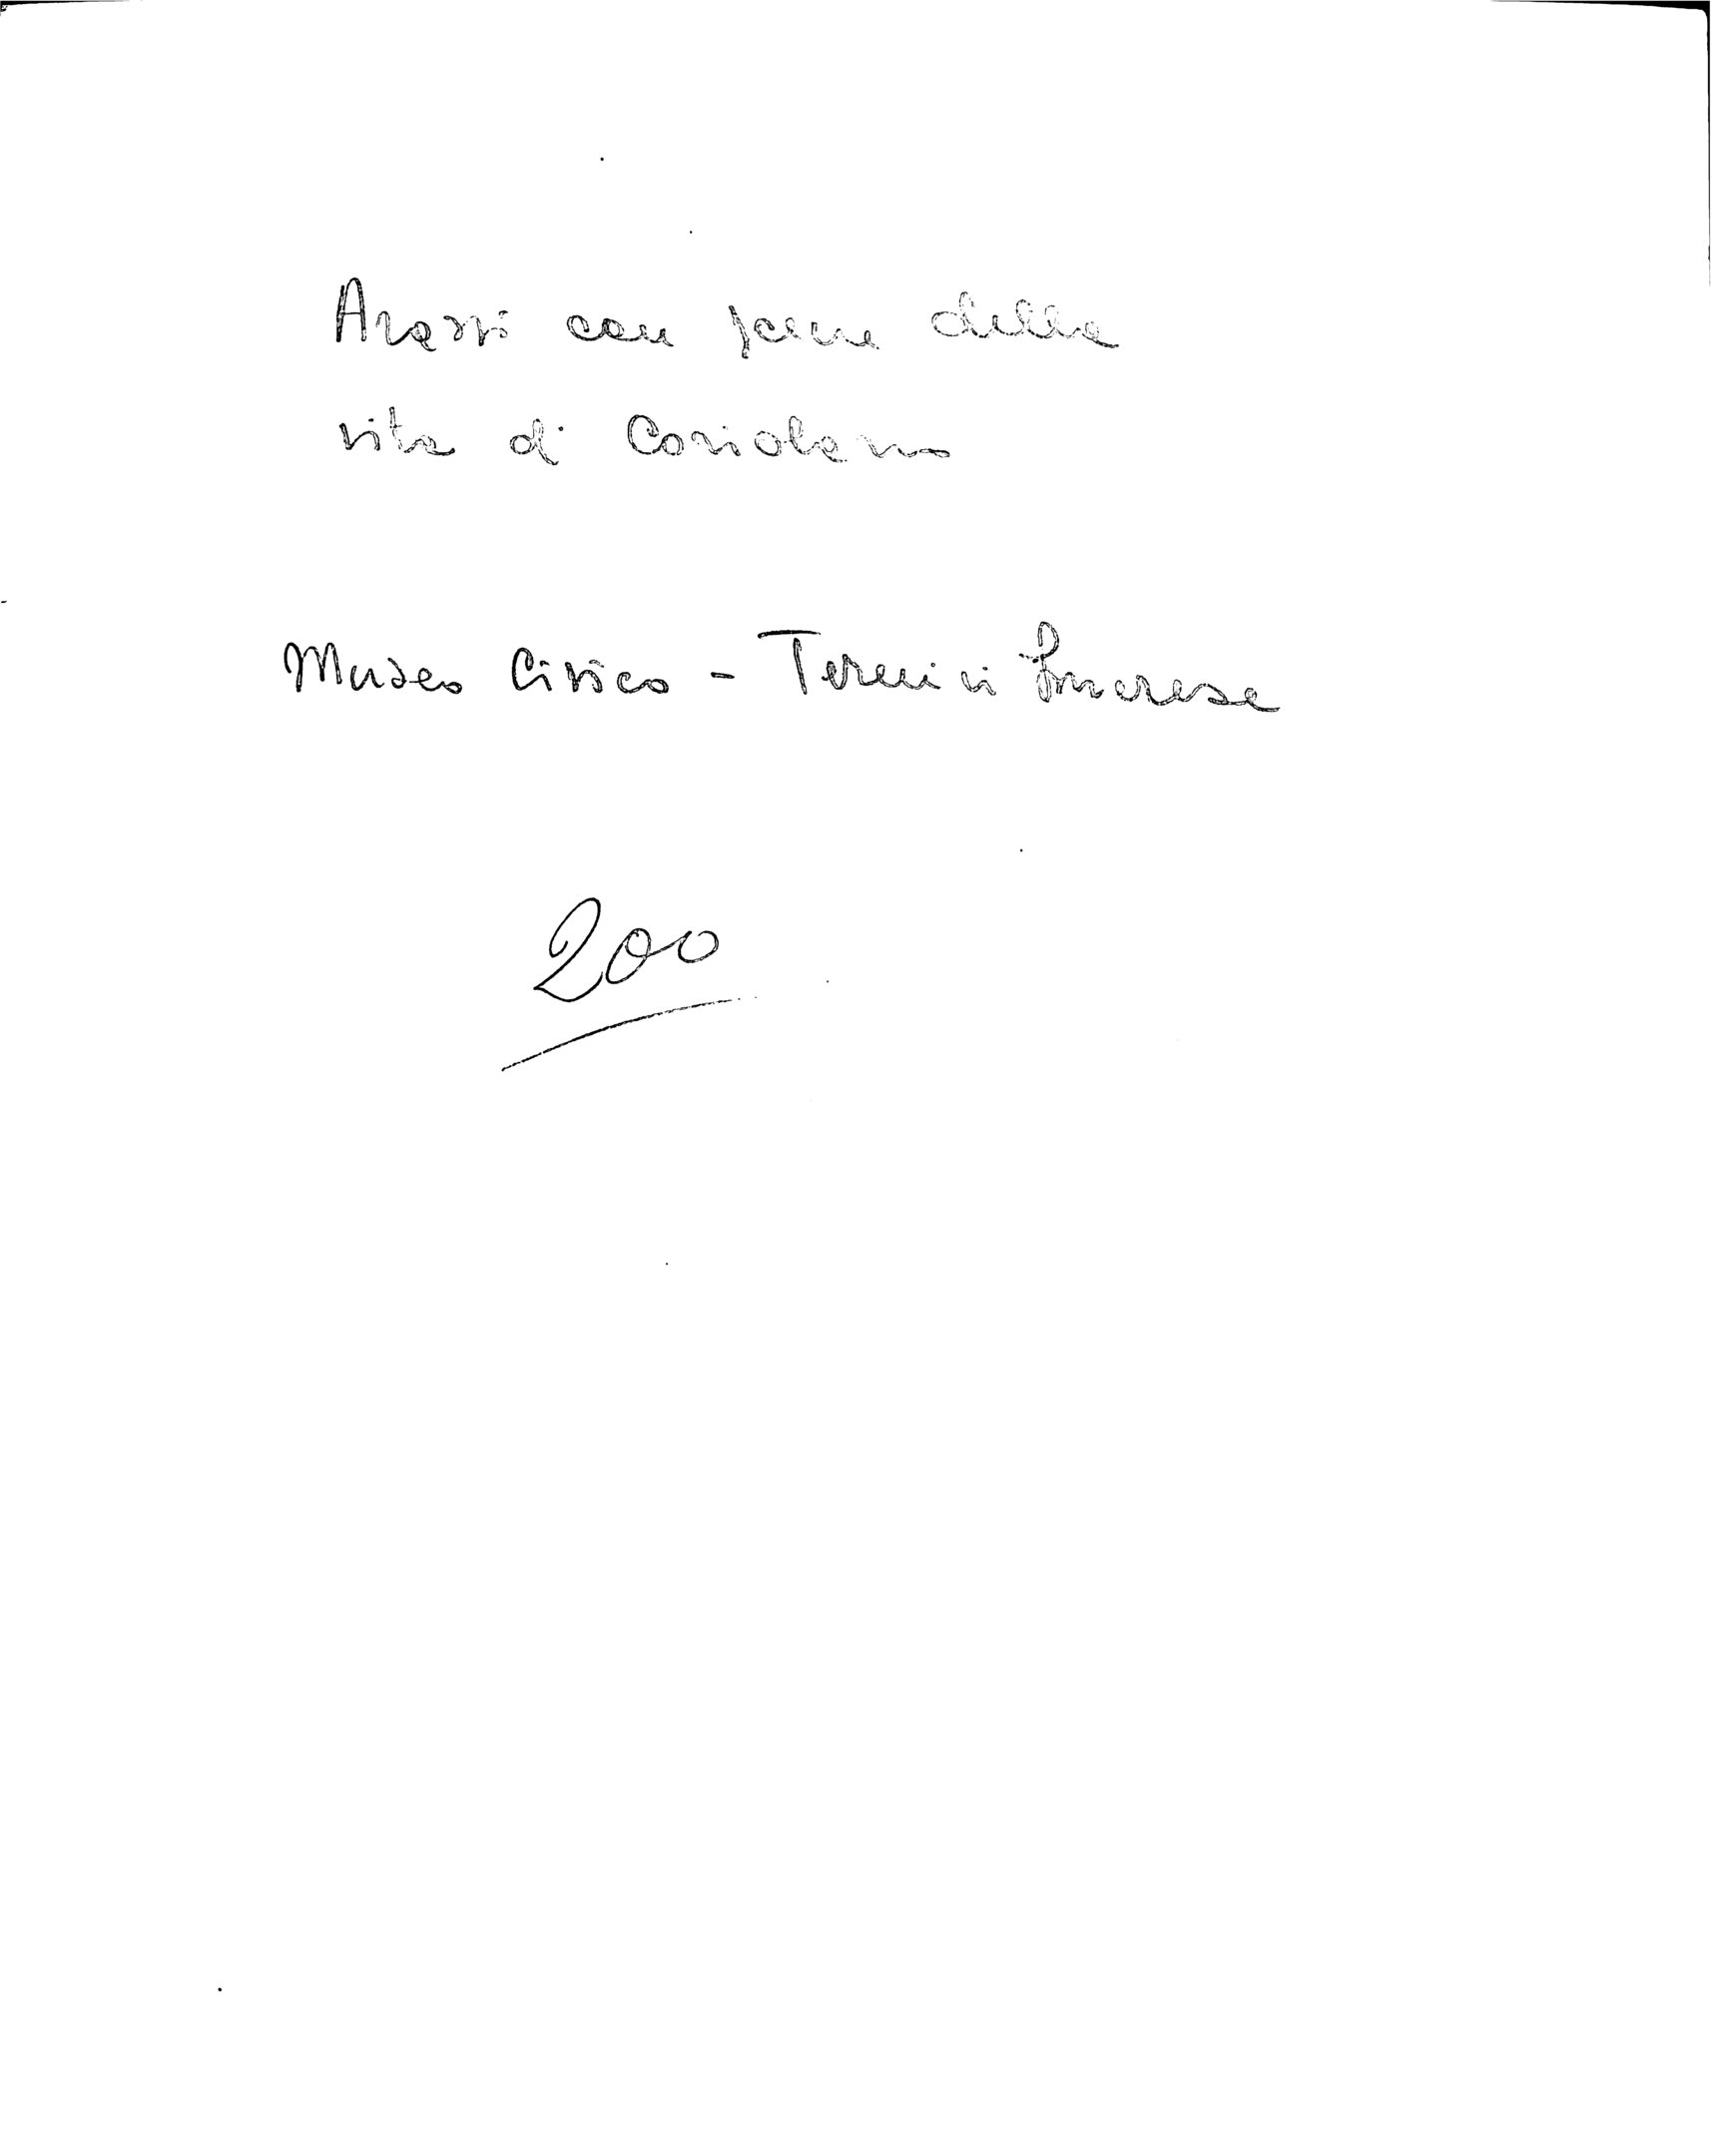 Arazzi con scene della
vita di Coriolano
Museo Civico - Termini Imerese
200